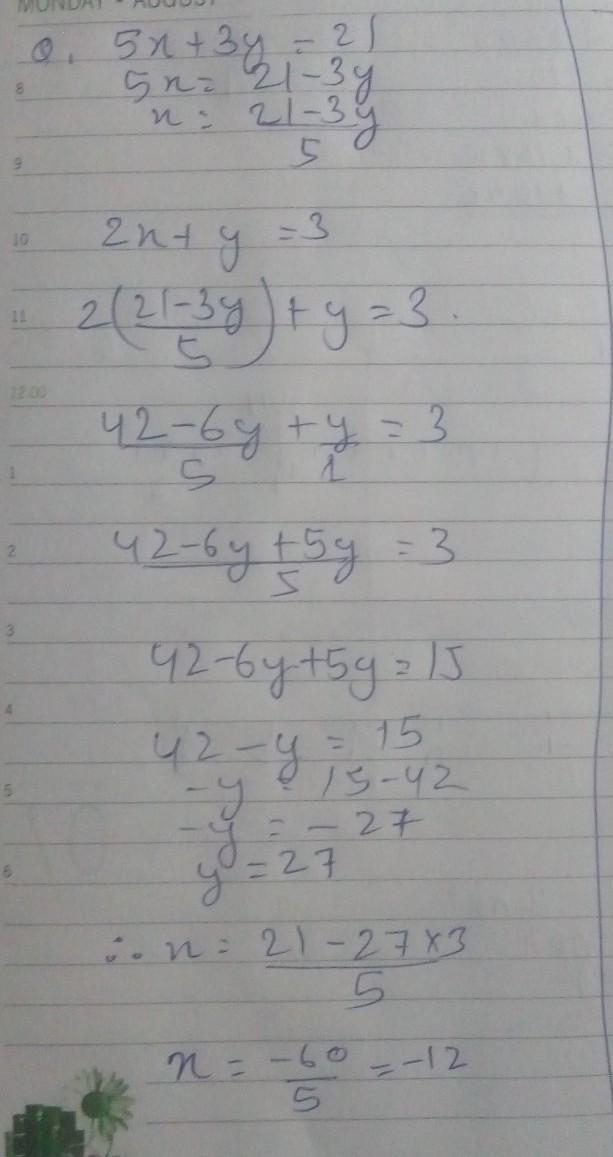 MONDAY - AUGUST
Q. 5x + 3y = 21
8 5x = 21 - 3y
x = 21 - 3y
5
9
10 2x + y = 3
11 2(21 - 3y) + y = 3.
5
12.00
42 - 6y + y = 3
1 5 1
2 42 - 6y + 5y = 3
5
3
42 - 6y + 5y = 15
4
42 - y = 15
5 -y = 15 - 42
-y = - 27
6 y = 27
∴ x = 21 - 27 × 3
5
x = -60 = -12
5